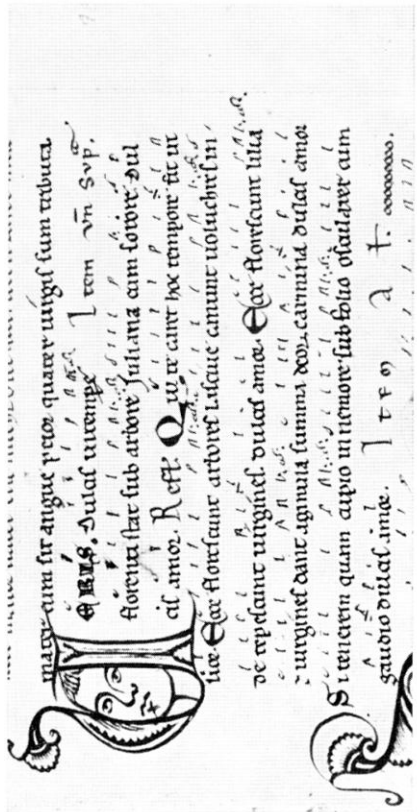 cum sit angue
VERIS. dulcis in tempe Item vn sup.
florenti stat sub arbore Juliana cum sorore. dul
cis amor. Refl. Qui te caret hoc tempore fit ui
lior. Ecce florescunt arbores lasciue canunt uolucres in
de tepescunt uirgines dulcis amor. Ecce florescunt lilia
7 uirgines dant agmina summo deorꝝ carmina dulcis amor
Si tenerem quam cupio in nemore sub folio oscularer cum
gaudio dulcis amor. Item a t.